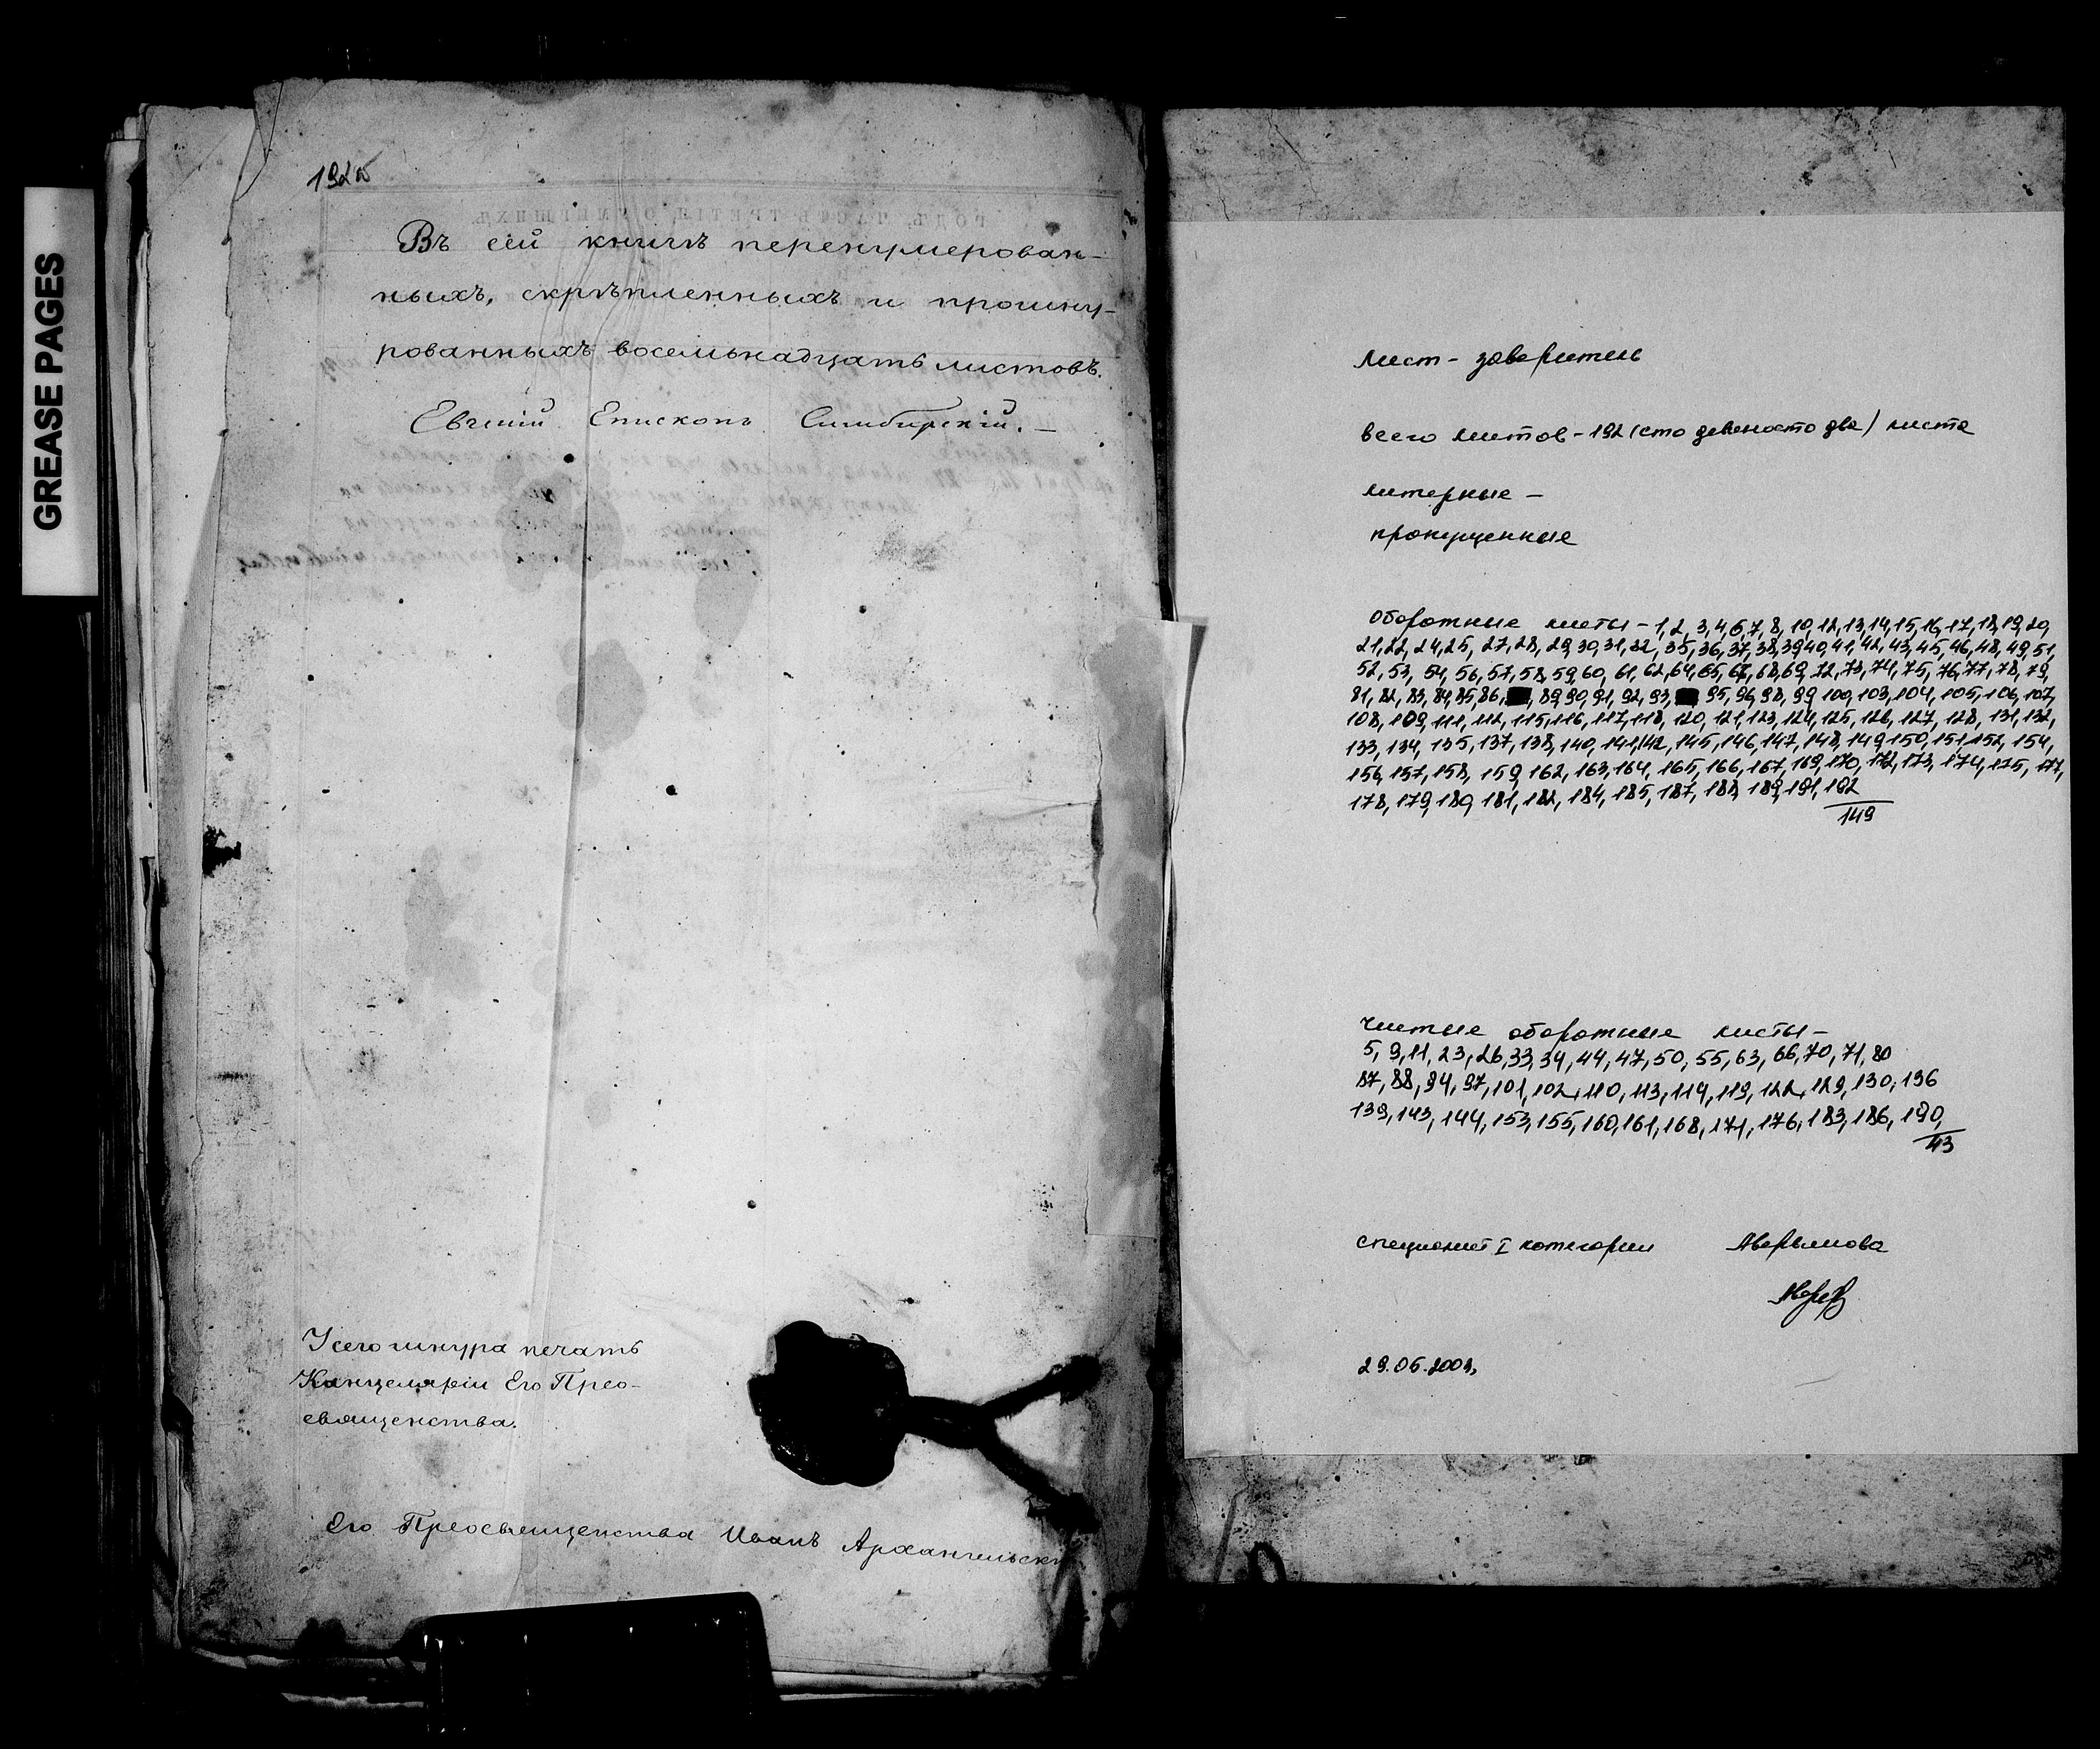 GREASE PAGES
192об
Въ сей книгѣ перенумерован-
ныхъ, скрѣпленныхъ и прошну-
рованныхъ восемьнадцать листовъ.
Евгеній Епископъ Симбирскій. –
У сего шнура печать
Канцеляріи Его Прео-
священства.
Его Преосвященства Иванъ Архангельск
Лист - заверитель
всего листов - 192 (сто девяносто два) листа
литерные -
пропущенные
Оборотные листы - 1, 2, 3, 4, 6, 7, 8, 10, 12, 13, 14, 15, 16, 17, 18, 19, 20,
21, 22, 24, 25, 27, 28, 29, 30, 31, 32, 35, 36, 37, 38, 39, 40, 41, 42, 43, 45, 46, 48, 49, 51,
52, 53, 54, 56, 57, 58, 59, 60, 61, 62, 64, 65, 67, 68, 69, 72, 73, 74, 75, 76, 77, 78, 79,
81, 82, 83, 84, 85, 86, 89, 90, 91, 92, 93, 95, 96, 98, 99, 100, 103, 104, 105, 106, 107,
108, 109, 111, 112, 115, 116, 117, 118, 120, 121, 123, 124, 125, 126, 127, 128, 131, 132,
133, 134, 135, 137, 138, 140, 141, 142, 145, 146, 147, 148, 149, 150, 151, 152, 154,
156, 157, 158, 159, 162, 163, 164, 165, 166, 167, 169, 170, 172, 173, 174, 175, 177,
178, 179, 180, 181, 182, 184, 185, 187, 188, 189, 191, 192
149
Чистые оборотные листы -
5, 9, 11, 23, 26, 33, 34, 44, 47, 50, 55, 63, 66, 70, 71, 80
87, 88, 94, 97, 101, 102, 110, 113, 114, 119, 122, 129, 130, 136
139, 143, 144, 153, 155, 160, 161, 168, 171, 176, 183, 186, 190,
43
специалист I категории Аверьянова
29.06.2009,